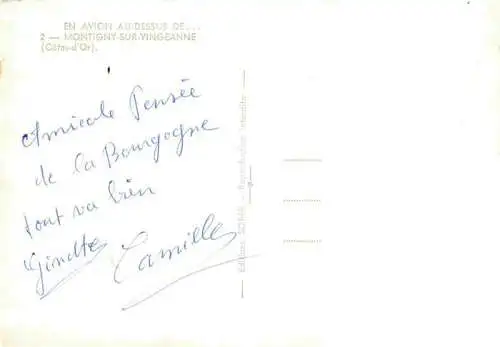 EN AVION AU-DESSUS DE...
2 — MONTIGNY-SUR-VINGEANNE
(Côte-d'Or).
Amicale Pensée
de la Bourgogne
tout va bien
Ginette Camille
Editions SOFER — Reproduction interdite